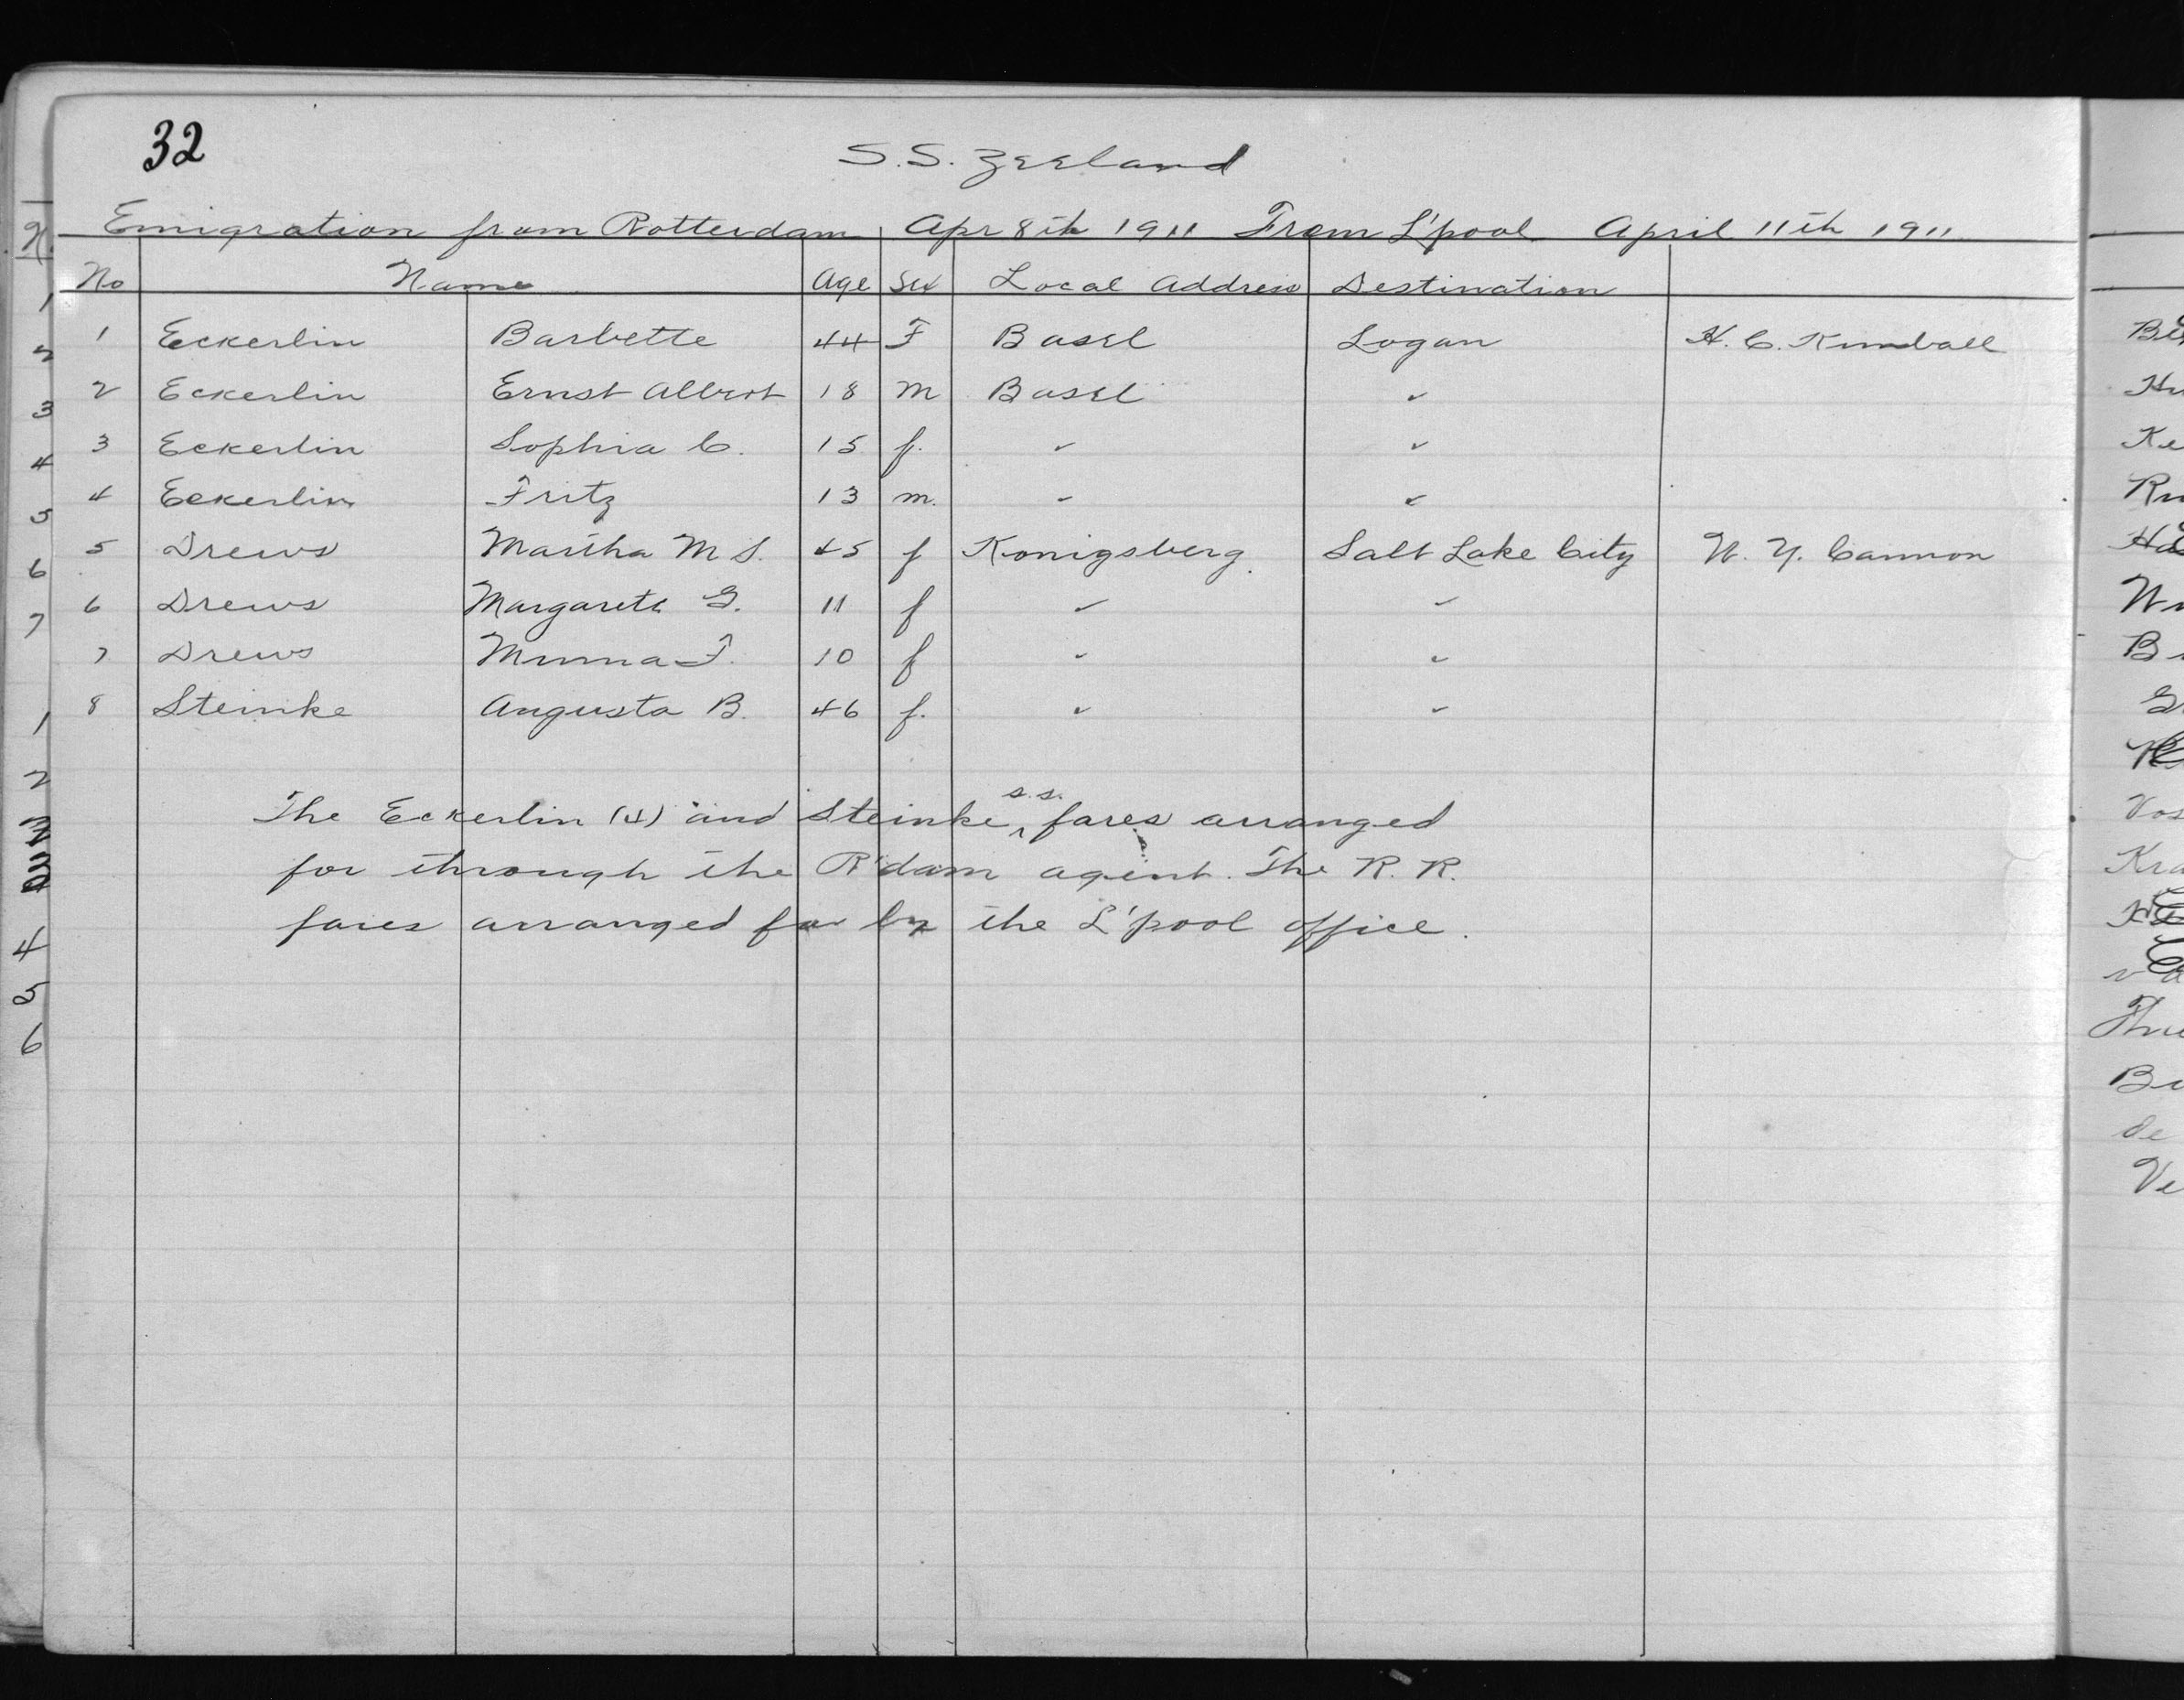 32
S.S. Zeeland
Emigration from Rotterdam Apr 8th 1911 From L'pool April 11th 1911
No Name Age Sex Local Address Destination
1 Eckerlin Barbette 44 F Basel Logan H. C. Kimball
2 Eckerlin Ernst Albert 18 m Basel "
3 Eckerlin Sophia C. 15 f. " "
4 Eckerlin Fritz 13 m. " "
5 Drews Martha M S. 45 f Konigsberg. Salt Lake City W. Y. Cannon
6 Drews Margarete G. 11 f " "
7 Drews Minna F. 10 f " "
8 Steinke Augusta B. 46 f. " "
The Eckerlin (4) and Steinke s.s. fares arranged
for through the R'dam agent. The R. R.
fares arranged for by the L'pool office.